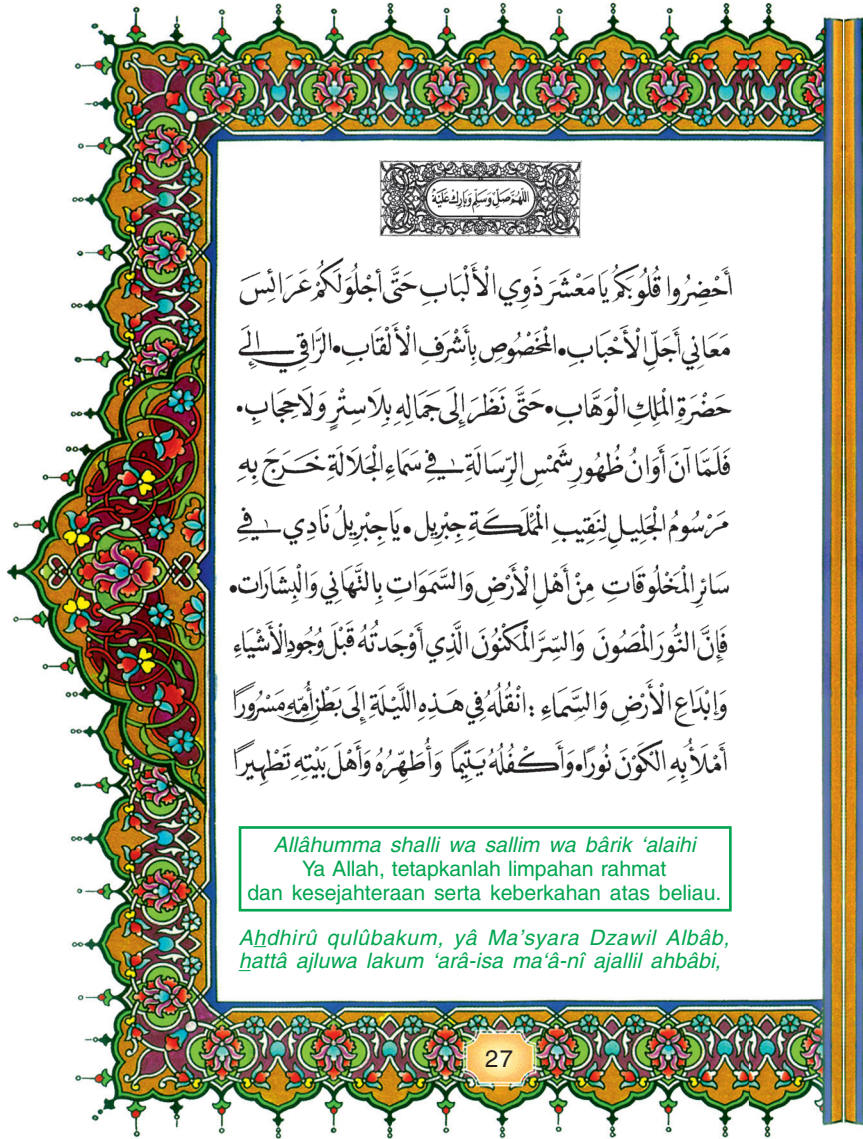 اللّٰهُمَّ صَلِّ وَسَلِّمْ وَبَارِكْ عَلَيْهِ
أَحْضِرُوا قُلُوْبَكُمْ يَا مَعْشَرَ ذَوِي الْأَلْبَابِ حَتَّى أَجْلُوَ لَكُمْ عَرَائِسَ
مَعَانِي أَجَلِّ الْأَحْبَابِ • الْمَخْصُوْصِ بِأَشْرَفِ الْأَلْقَابِ • الرَّاقِي إِلَى
حَضْرَةِ الْمَلِكِ الْوَهَّابِ • حَتَّى نَظَرَ إِلَى جَمَالِهِ بِلَا سِتْرٍ وَلَا حِجَابٍ •
فَلَمَّا آنَ أَوَانُ ظُهُورِ شَمْسِ الرِّسَالَةِ فِي سَمَاءِ الْجَلَالَةِ خَرَجَ بِهِ
مَرْسُوْمُ الْجَلِيلِ لِنَقِيبِ الْمَمْلَكَةِ جِبْرِيلَ • يَا جِبْرِيلُ نَادِي فِي
سَائِرِ الْمَخْلُوقَاتِ مِنْ أَهْلِ الْأَرْضِ وَالسَّمَوَاتِ بِالتَّهَانِي وَالْبِشَارَات •
فَإِنَّ النُّورَ الْمَصُونَ وَالسِّرَّ الْمَكْنُوْنَ الَّذِي أَوْجَدتُهُ قَبْلَ وُجُودِ الْأَشْيَاءِ
وَإِبْدَاعِ الْأَرْضِ وَالسَّمَاءِ : انْقُلُهُ فِي هَذِهِ اللَّيْلَةِ إِلَى بَطْنِ أُمِّهِ مَسْرُورًا
أَمْلَأُ بِهِ الْكَوْنَ نُورًا • وَأَكْفُلُهُ يَتِيمًا وَأُطَهِّرُهُ وَأَهْلَ بَيْتِهِ تَطْهِيرًا
Allâhumma shalli wa sallim wa bârik ‘alaihi
Ya Allah, tetapkanlah limpahan rahmat
dan kesejahteraan serta keberkahan atas beliau.
Aḫdhirû qulûbakum, yâ Ma’syara Dzawil Albâb,
ẖattâ ajluwa lakum ‘arâ-isa ma‘â-nî ajallil ahbâbi,
27